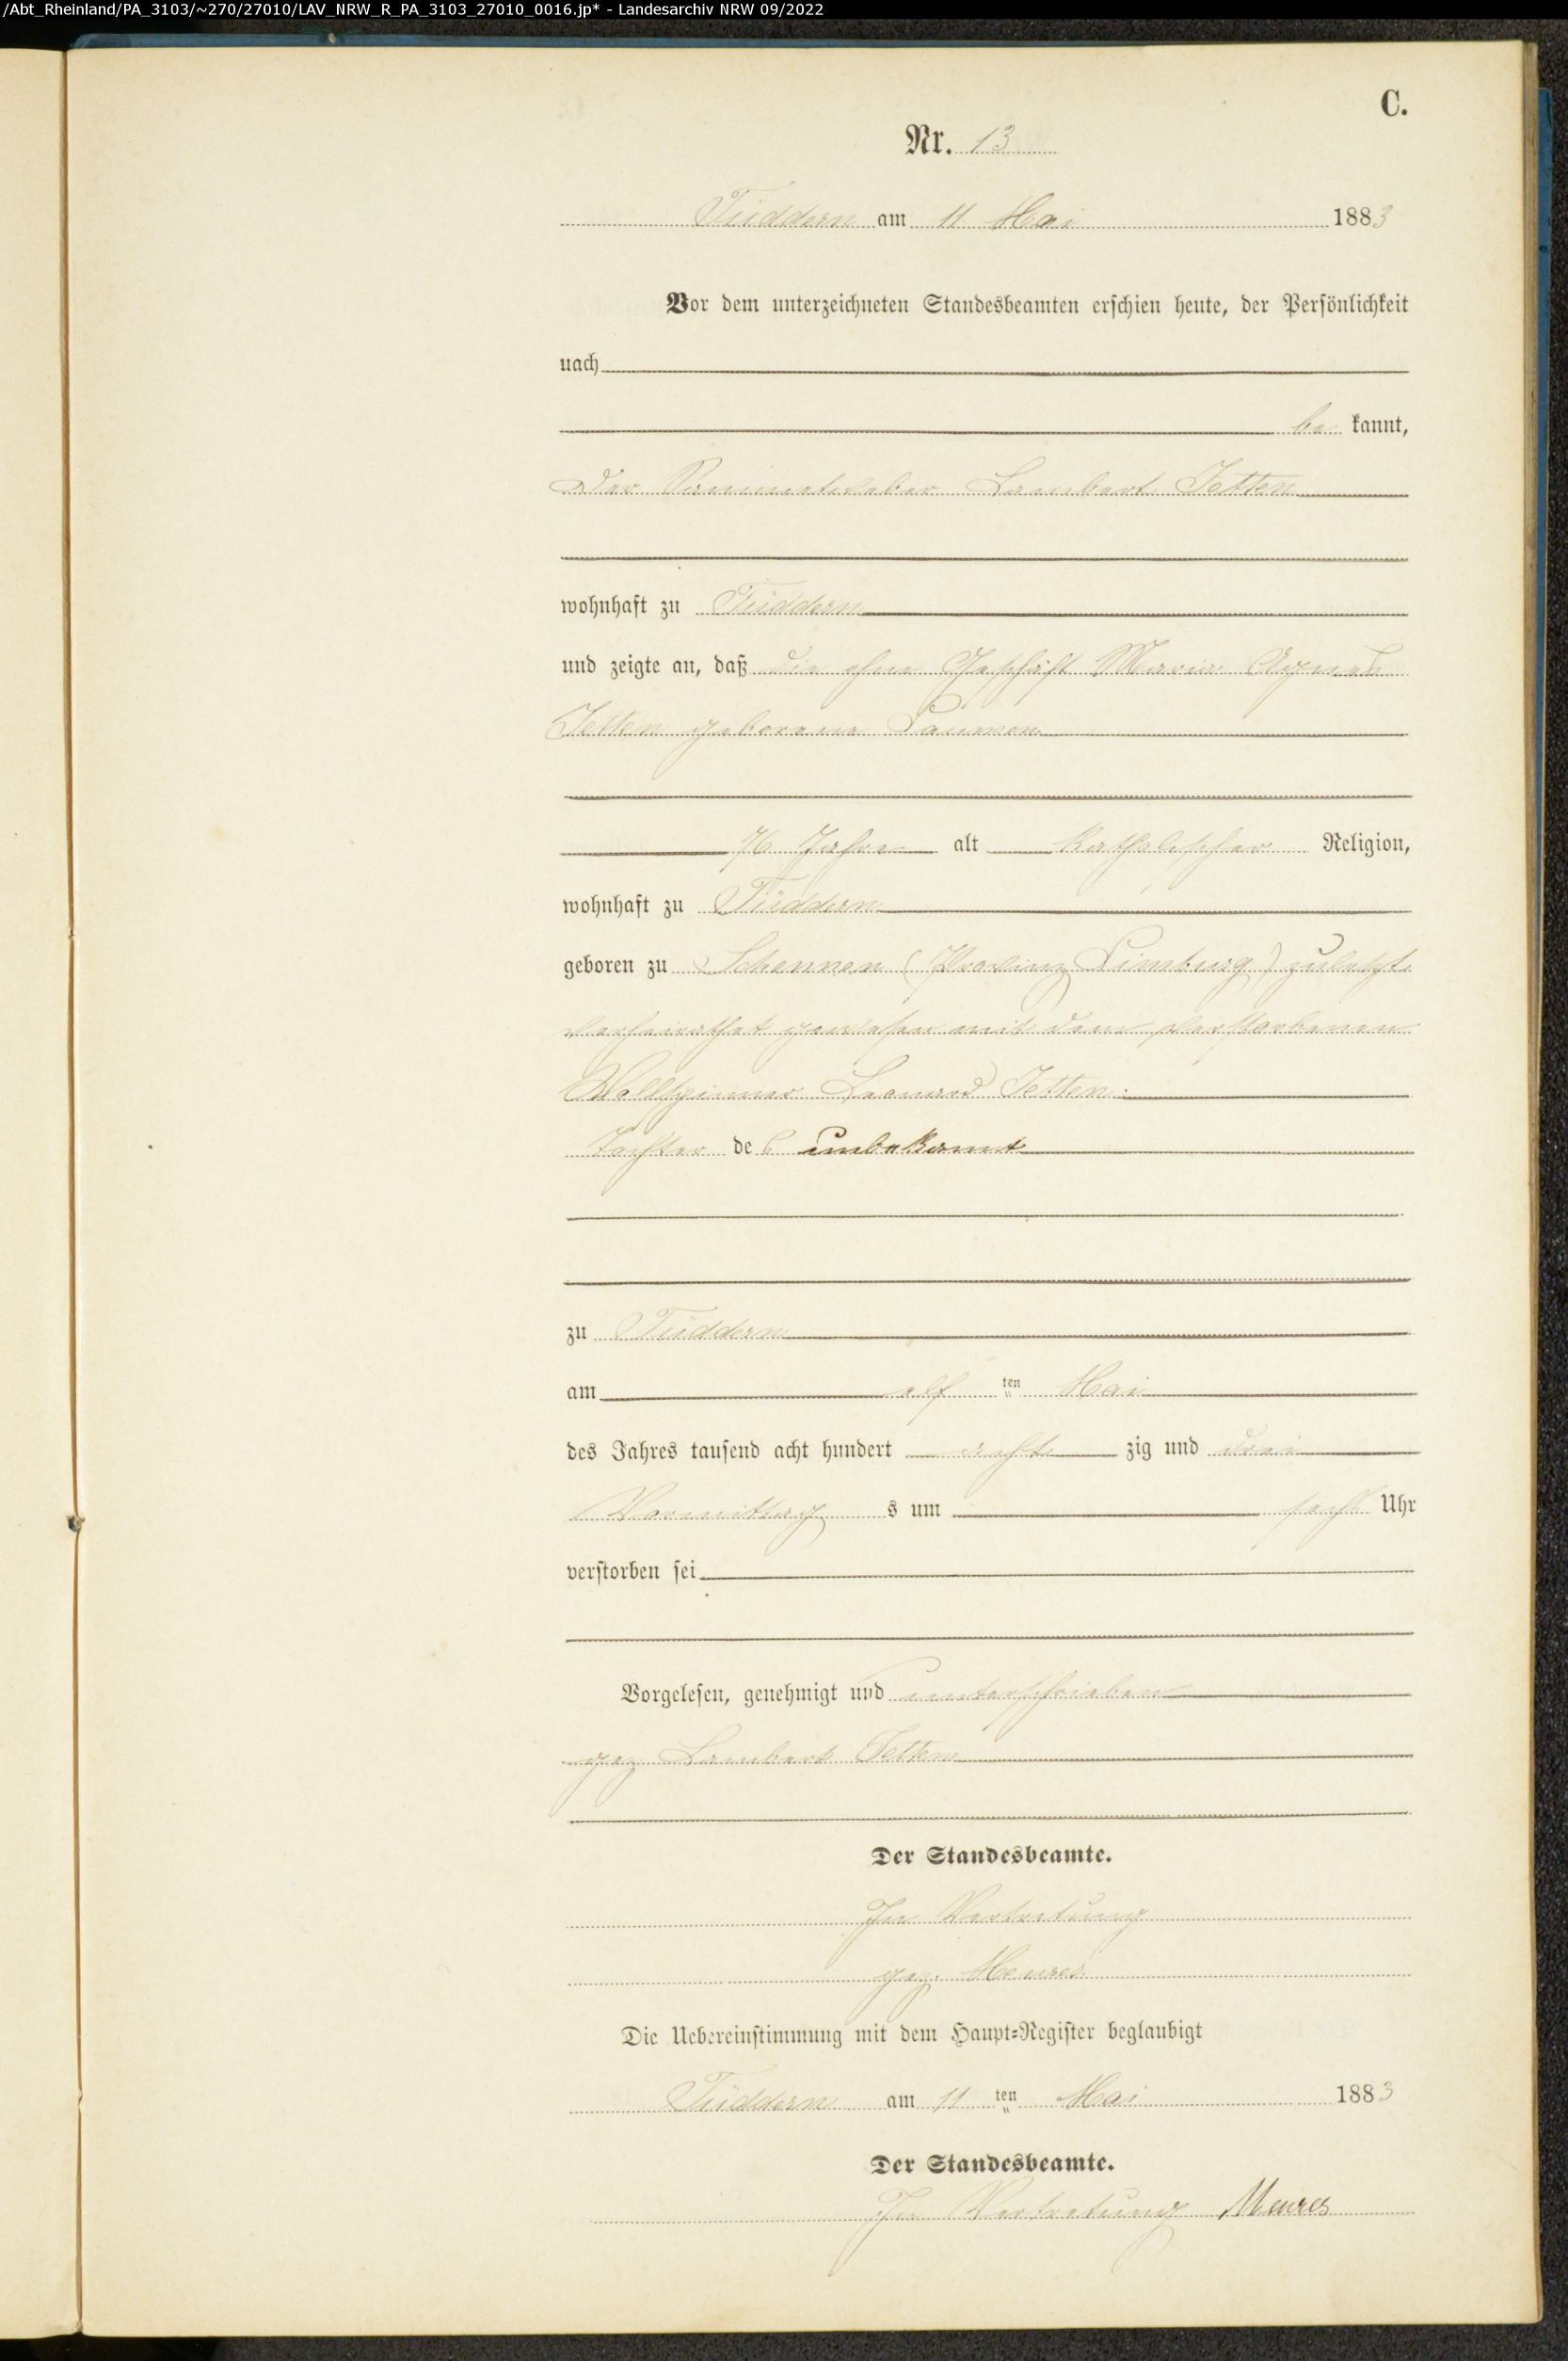 /Abt_Rheinland/PA_3103/~270/27010/LAV_NRW_R_PA_3103_27010_0016.jp* - Landesarchiv NRW 09/2022
C.
Nr. 13
Tüddern am 11 Mai 1883
Vor dem unterzeichneten Standesbeamten erschien heute, der Persönlichkeit
nach
be kannt,
der Sammetweber Lambert Tetten
wohnhaft zu Tüddern
und zeigte an, daß die ohne Geschäft Maria Agnes
Tetten geborene Laumen
76 Jahre alt katholischer Religion,
wohnhaft zu Tüddern
geboren zu Schennen (Provinz Limburg) zuletzt
verheirathet gewesen mit dem verstorbenen
Wollspinner Leonard Tetten.
Tochter des unbekannt
zu Tüddern
am elf ten Mai
des Jahres tausend acht hundert acht zig und drei
Vormittag s um sechs Uhr
verstorben sei
Vorgelesen, genehmigt und unterschrieben
gez Lambert Tetten
Der Standesbeamte.
In Vertretung
gez. Meures
Die Uebereinstimmung mit dem Haupt-Register beglaubigt
Tüddern am 11 ten Mai 1883
Der Standesbeamte.
In Vertretung Meures